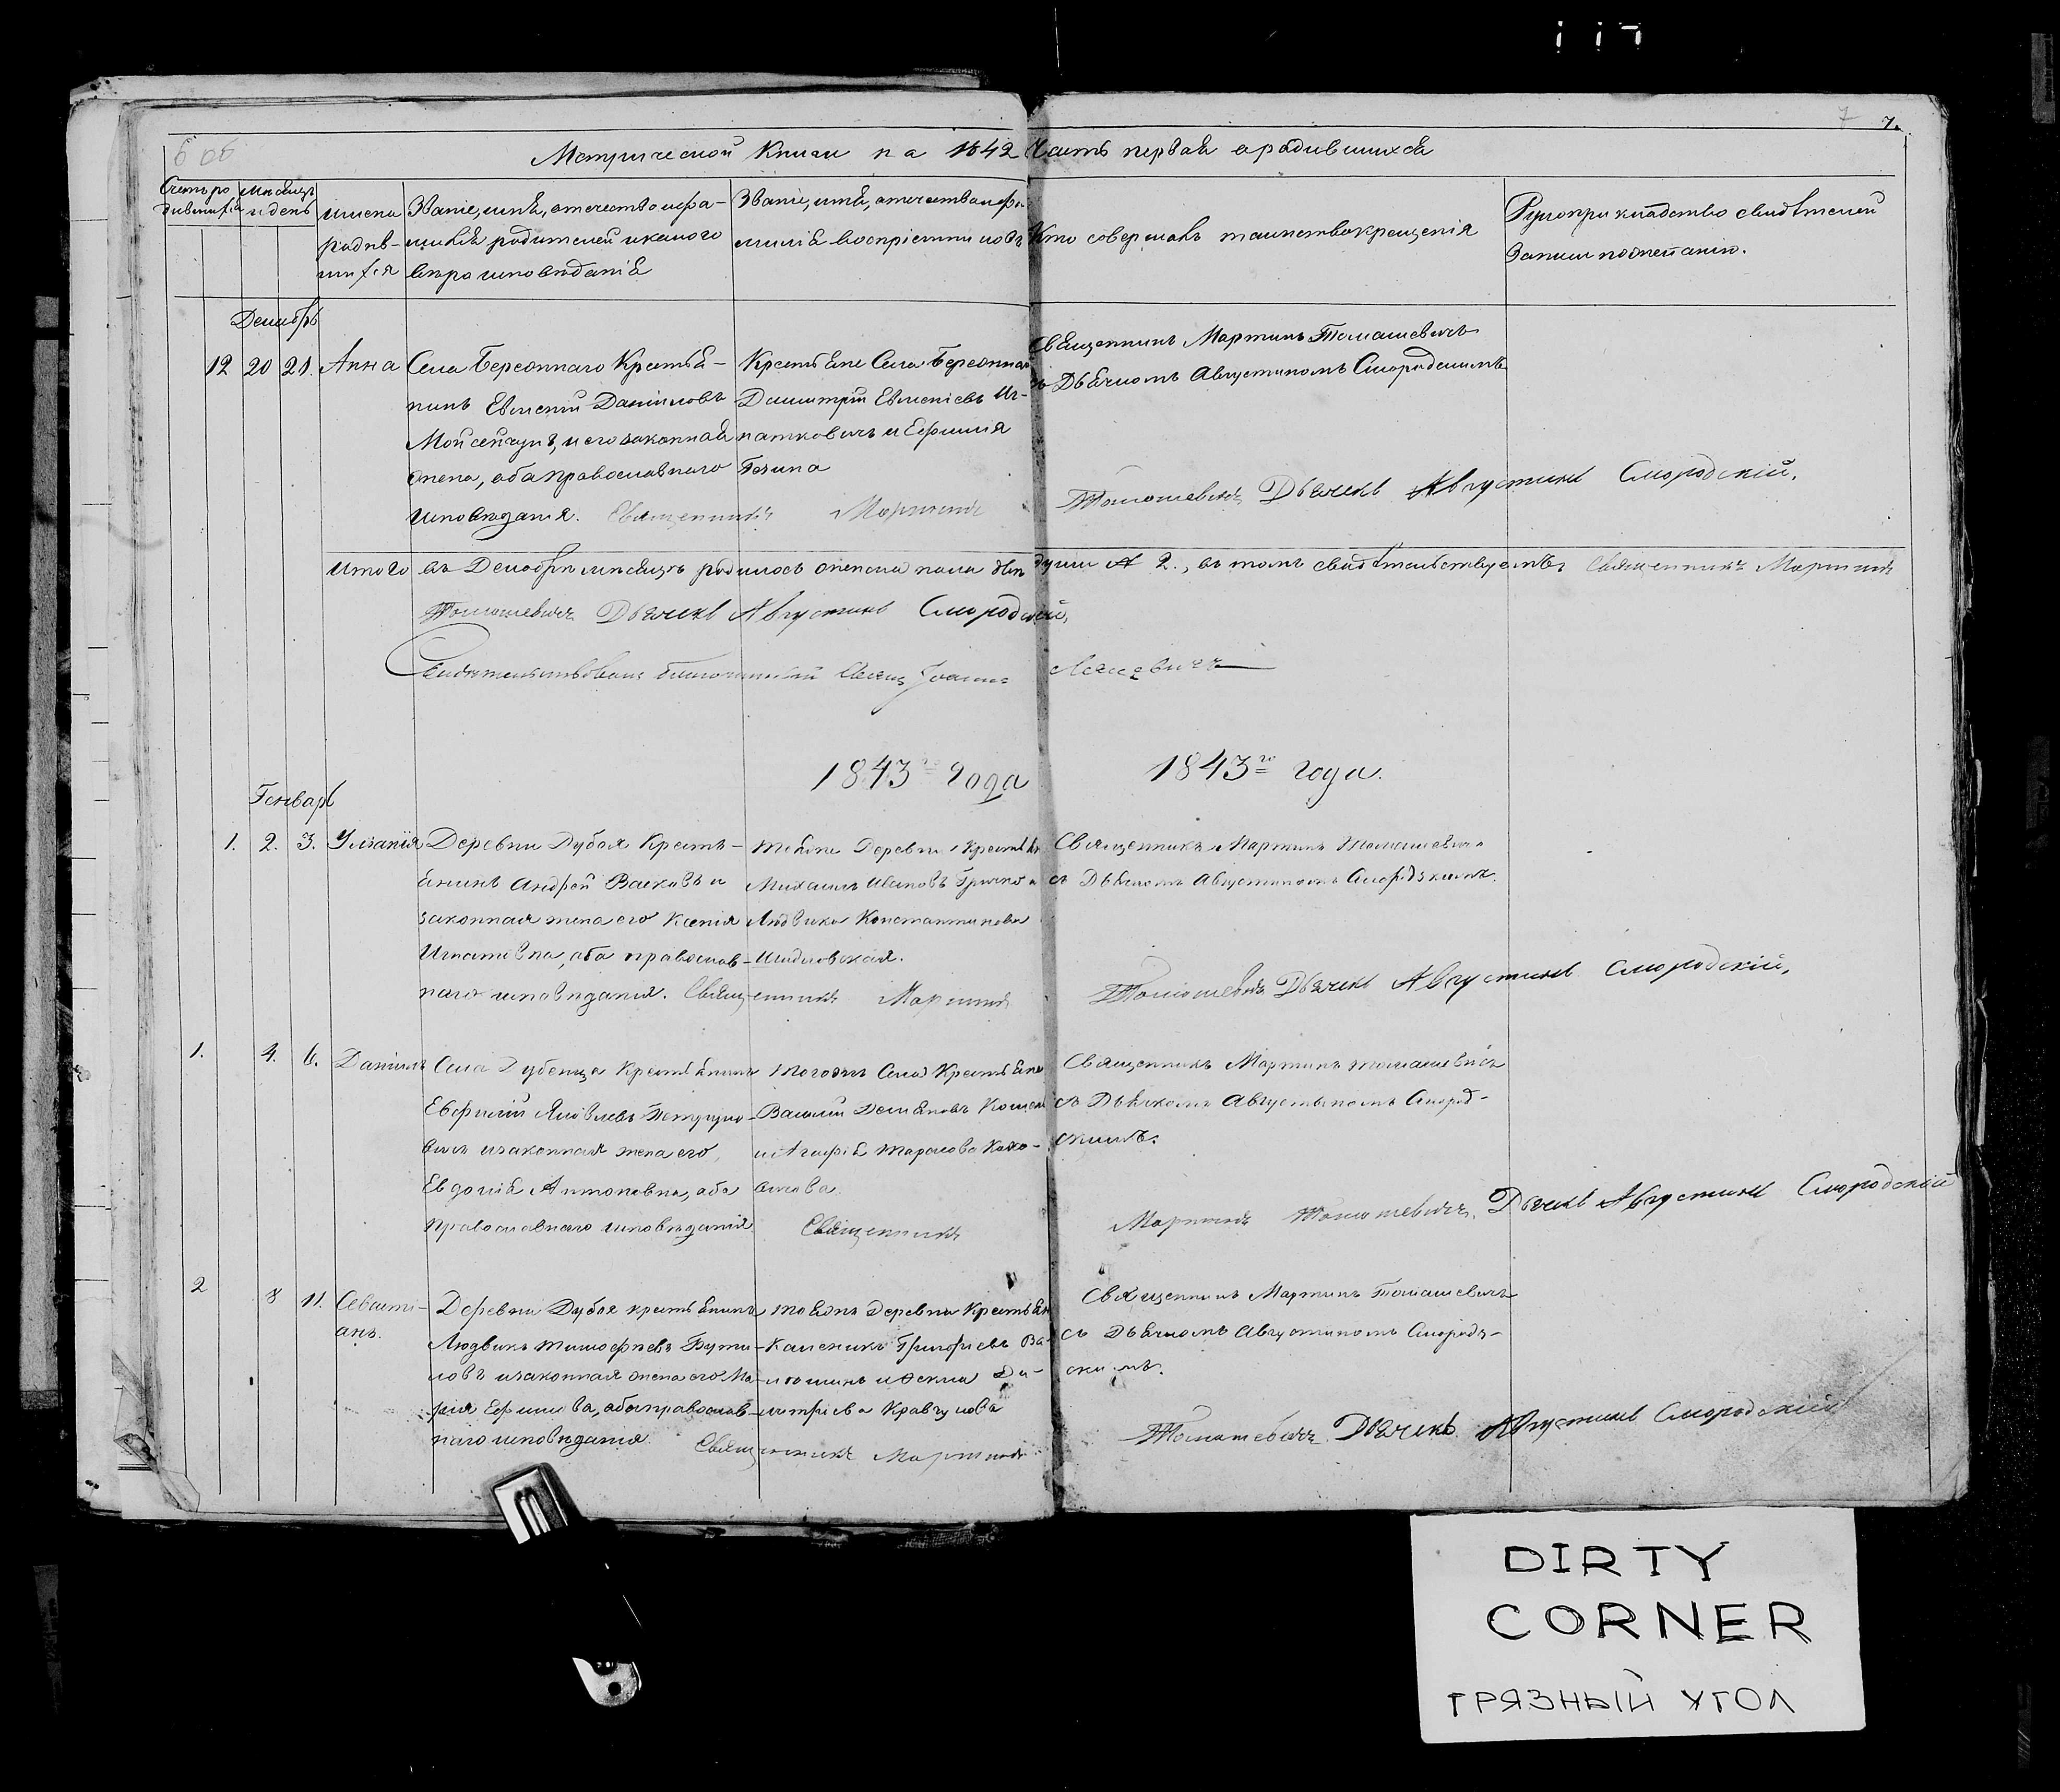 6 об
7
7.
Метрической Книги на 1842 Часть первая о родившихся
Счетъ родившихся
Мѣсяцъ и день
имена родив-шихся
Званіе, имя, отечество и фа-
милія родителей и какого
вѣроисповѣданія
Званіе, имя, отечество и фа-
милія воспріемниковъ
Кто совершалъ таинство крещенія
Рукоприкладство свидѣтелей
записи по желанію.
Декабрь
12 20 21. Анна
Села Бересннаго Крестья-
нинъ Евменій Даниловъ
Мойсейчукъ, и его законная
жена, оба православнаго
исповѣданія.
Крестьяне Села Бересннаго
Димитрій Евменіевъ Иг-
натковичъ и Ефимія
Священникъ Мартинъ Томашевичъ
съ Дьячкомъ Августиномъ Смородскимъ
Священникъ Мартинъ Томашевичъ Дьячекъ Августинъ Смородскій.
Итого въ Декабрѣ мѣсяцѣ родилось женска пола двѣ души 2., въ томъ свидѣтельствуемъ Священникъ Мартинъ
Томашевичъ Дьячекъ Августинъ Смородскій,
Свидѣтельствовалъ Благочинный Свящ Іоаннъ
1843го года
1843го года.
Генварь
1. 2. 3. Уліанія
Деревни Дубоя Кресть-
янинъ Андрей Васковъ и
законная жена его Ксенія
Игнатовна, оба православ-
наго исповѣданія.
тояже Деревни Крестьяне
Михаилъ Ивановъ Гричко и
Людвика Константинова
Шидловская.
Священникъ Мартинъ Томашевичъ
съ Дьячкомъ Августиномъ Смородскимъ.
Священникъ Мартинъ Томашевичъ Дьячекъ Августинъ Смородскій,
1. 4. 6. Даніилъ
Села Дубенца Крестьянинъ
Евфимій Яковлевъ
вичъ и законная жена его,
Евдокія Антоновна, оба
православнаго исповѣданія
Тогожъ Села Крестьяне
Василій Демьяновъ
и Агафія Тарасова
Священникъ Мартинъ Томашевичъ
съ Дьячкомъ Августиномъ Смород-
скимъ.
Священникъ Мартинъ Томашевичъ, Дьячекъ Августинъ Смородскій
2 8 11. Севасті-
анъ.
Деревни Дубоя крестьянинъ
Людвикъ Тимофѣевъ
ловъ и законная жена его Ма-
рія Ефимова, оба православ-
наго исповѣданія.
тояжъ деревни Крестьяне
Каленикъ Григорьевъ Ва-
и Фекла Ди-
митріева Кравчукова
Священникъ Мартинъ Томашевичъ
съ Дьячкомъ Августиномъ Смород-
скимъ.
Священникъ Мартинъ Томашевичъ Дьячекъ Августинъ Смородскій
DIRTY
CORNER
ГРЯЗНЫЙ УГОЛ